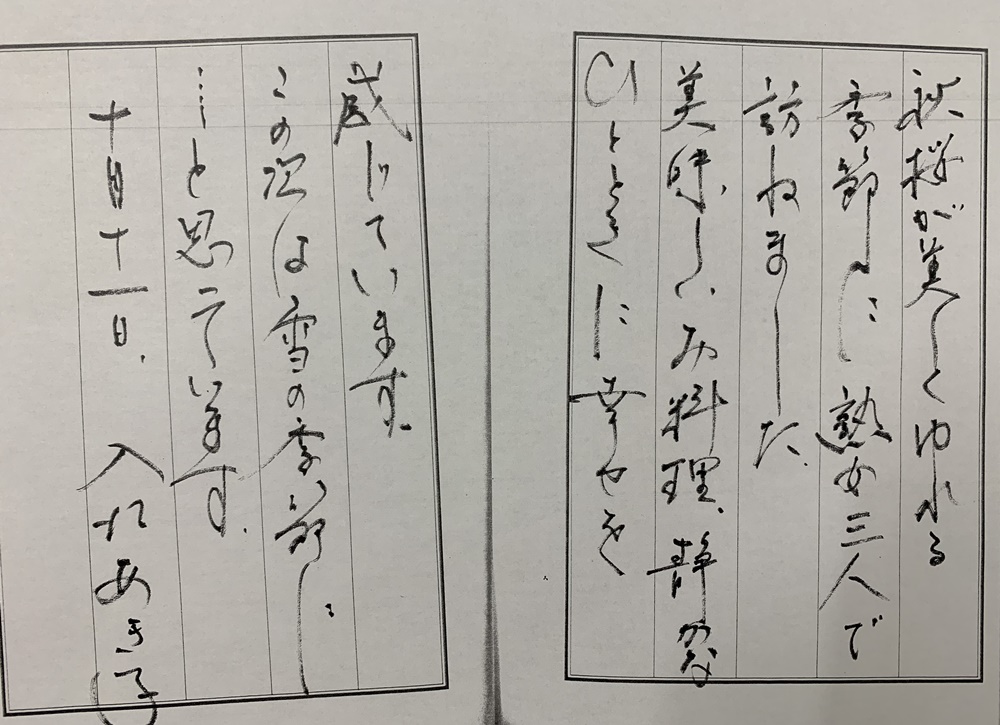 秋桜が美しくゆれる
季節に熟女三人で
訪ねました
美味しいお料理、静かな
ひとときに幸せを
感じています。
この次は雪の季節に
……と思っています。
十月十一日、入江あき子